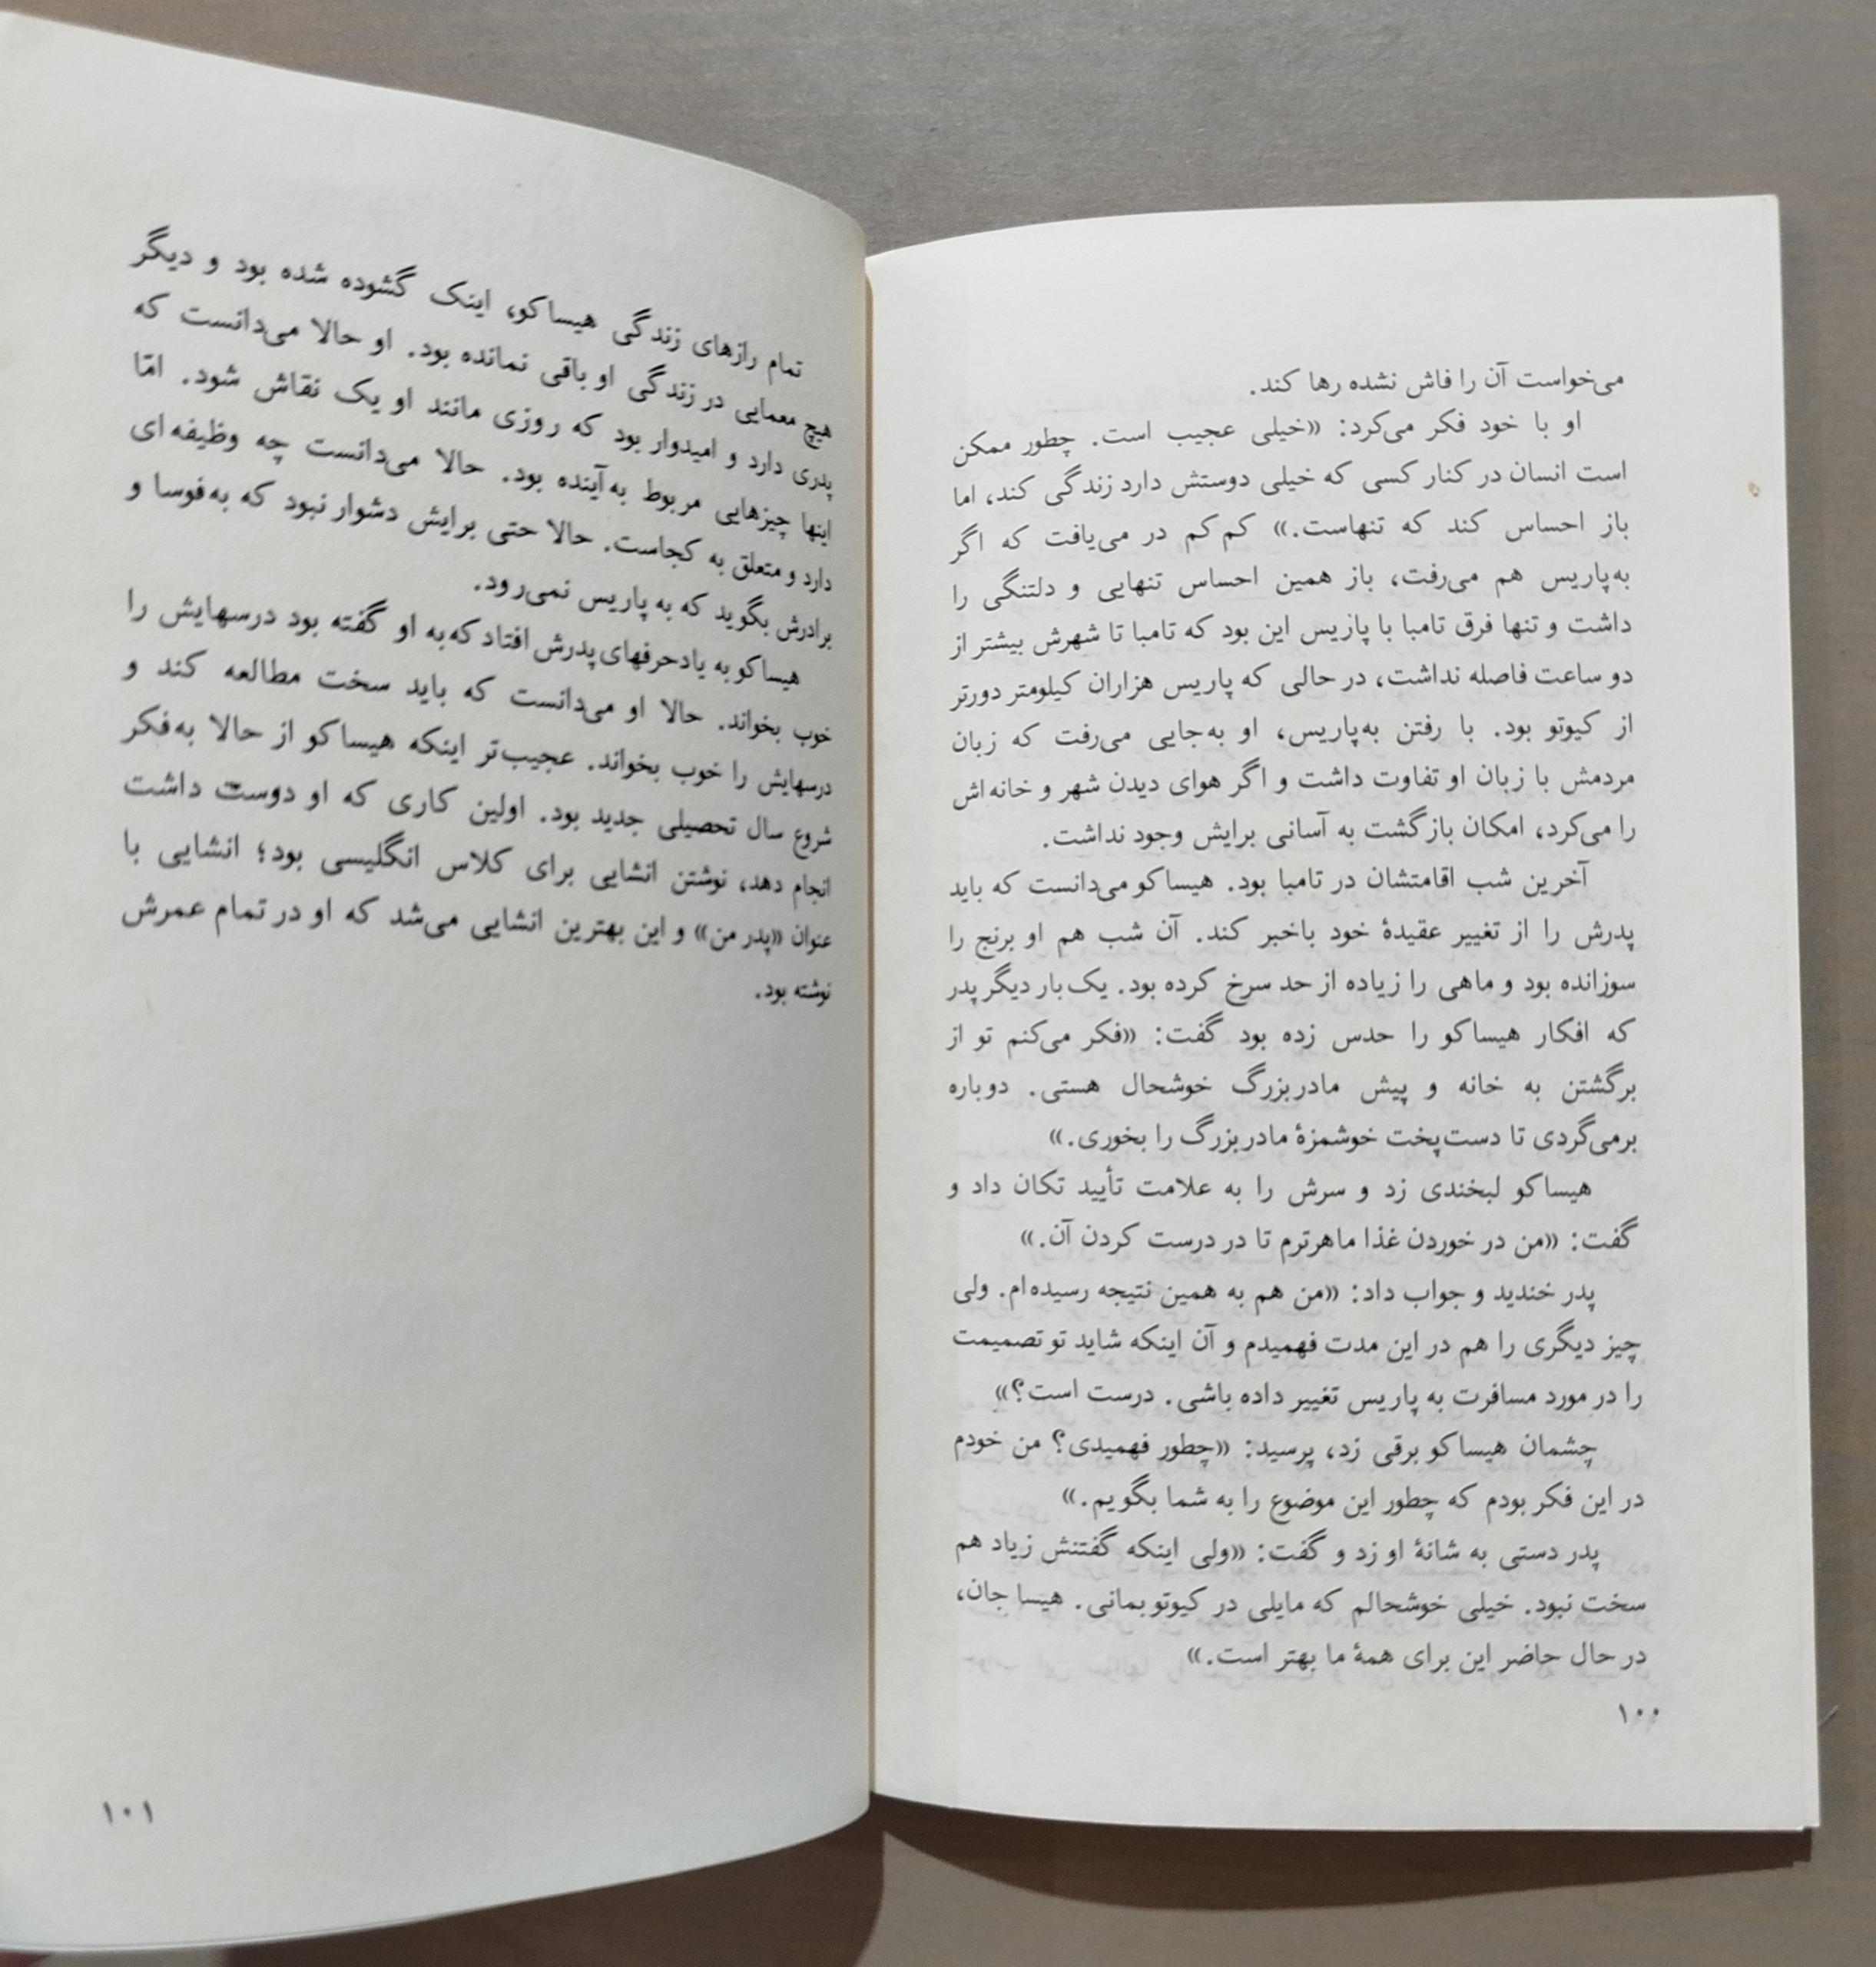 می‌خواست آن را فاش نشده رها کند.
او با خود فکر می‌کرد: «خیلی عجیب است. چطور ممکن
است انسان در کنار کسی که خیلی دوستش دارد زندگی کند، اما
باز احساس کند که تنهاست.» کم‌کم در می‌یافت که اگر
به‌پاریس هم می‌رفت، باز همین احساس تنهایی و دلتنگی را
داشت و تنها فرق تامبا با پاریس این بود که تامبا تا شهرش بیشتر از
دو ساعت فاصله نداشت، در حالی که پاریس هزاران کیلومتر دورتر
از کیوتو بود. با رفتن به‌پاریس، او به‌جایی می‌رفت که زبان
مردمش با زبان او تفاوت داشت و اگر هوای دیدن شهر و خانه‌اش
را می‌کرد، امکان بازگشت به آسانی برایش وجود نداشت.
آخرین شب اقامتشان در تامبا بود. هیساکو می‌دانست که باید
پدرش را از تغییر عقیدهٔ خود باخبر کند. آن شب هم او برنج را
سوزانده بود و ماهی را زیاده از حد سرخ کرده بود. یک‌بار دیگر پدر
که افکار هیساکو را حدس زده بود گفت: «فکر می‌کنم تو از
برگشتن به خانه و پیش مادربزرگ خوشحال هستی. دوباره
برمی‌گردی تا دست‌پخت خوشمزهٔ مادربزرگ را بخوری.»
هیساکو لبخندی زد و سرش را به علامت تأیید تکان داد و
گفت: «من در خوردن غذا ماهرترم تا در درست کردن آن.»
پدر خندید و جواب داد: «من هم به همین نتیجه رسیده‌ام. ولی
چیز دیگری را هم در این مدت فهمیدم و آن اینکه شاید تو تصمیمت
را در مورد مسافرت به پاریس تغییر داده باشی. درست است؟»
چشمان هیساکو برقی زد، پرسید: «چطور فهمیدی؟ من خودم
در این فکر بودم که چطور این موضوع را به شما بگویم.»
پدر دستی به شانهٔ او زد و گفت: «ولی اینکه گفتنش زیاد هم
سخت نبود. خیلی خوشحالم که مایلی در کیوتو بمانی. هیسا جان،
در حال حاضر این برای همهٔ ما بهتر است.»
۱۰۰
تمام رازهای زندگی هیساکو، اینک گشوده شده بود و دیگر
هیچ معمایی در زندگی او باقی نمانده بود. او حالا می‌دانست که
پدری دارد و امیدوار بود که روزی مانند او یک نقاش شود. امّا
اینها چیزهایی مربوط به‌آینده بود. حالا می‌دانست چه وظیفه‌ای
دارد و متعلق به کجاست. حالا حتی برایش دشوار نبود که به‌فوسا و
برادرش بگوید که به پاریس نمی‌رود.
هیساکو به یاد حرفهای پدرش افتاد که‌به او گفته بود درسهایش را
خوب بخواند. حالا او می‌دانست که باید سخت مطالعه کند و
درسهایش را خوب بخواند. عجیب‌تر اینکه هیساکو از حالا به‌فکر
شروع سال تحصیلی جدید بود. اولین کاری که او دوست داشت
انجام دهد، نوشتن انشایی برای کلاس انگلیسی بود؛ انشایی با
عنوان «پدر من» و این بهترین انشایی می‌شد که او در تمام عمرش
نوشته بود.
۱۰۱